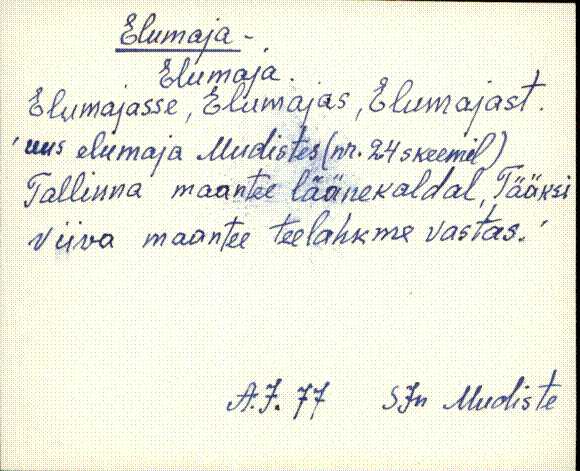 Elumaja -
Elumaja.
Elumajasse, Elumajas, Elumajast.
'uus elumaja Mudistes (nr. 24 skeemil)
Tallinna maantee läänekaldal, Tääksi
viiva maantee teelahkme vastas.'
A.J. 77 SJn Mudiste